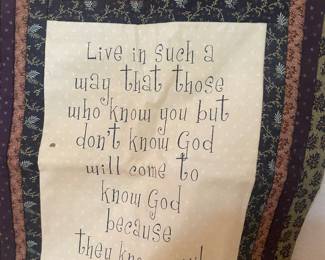 Live in such a
way that those
who know you but
don't know God
will come to
know God
because
they know